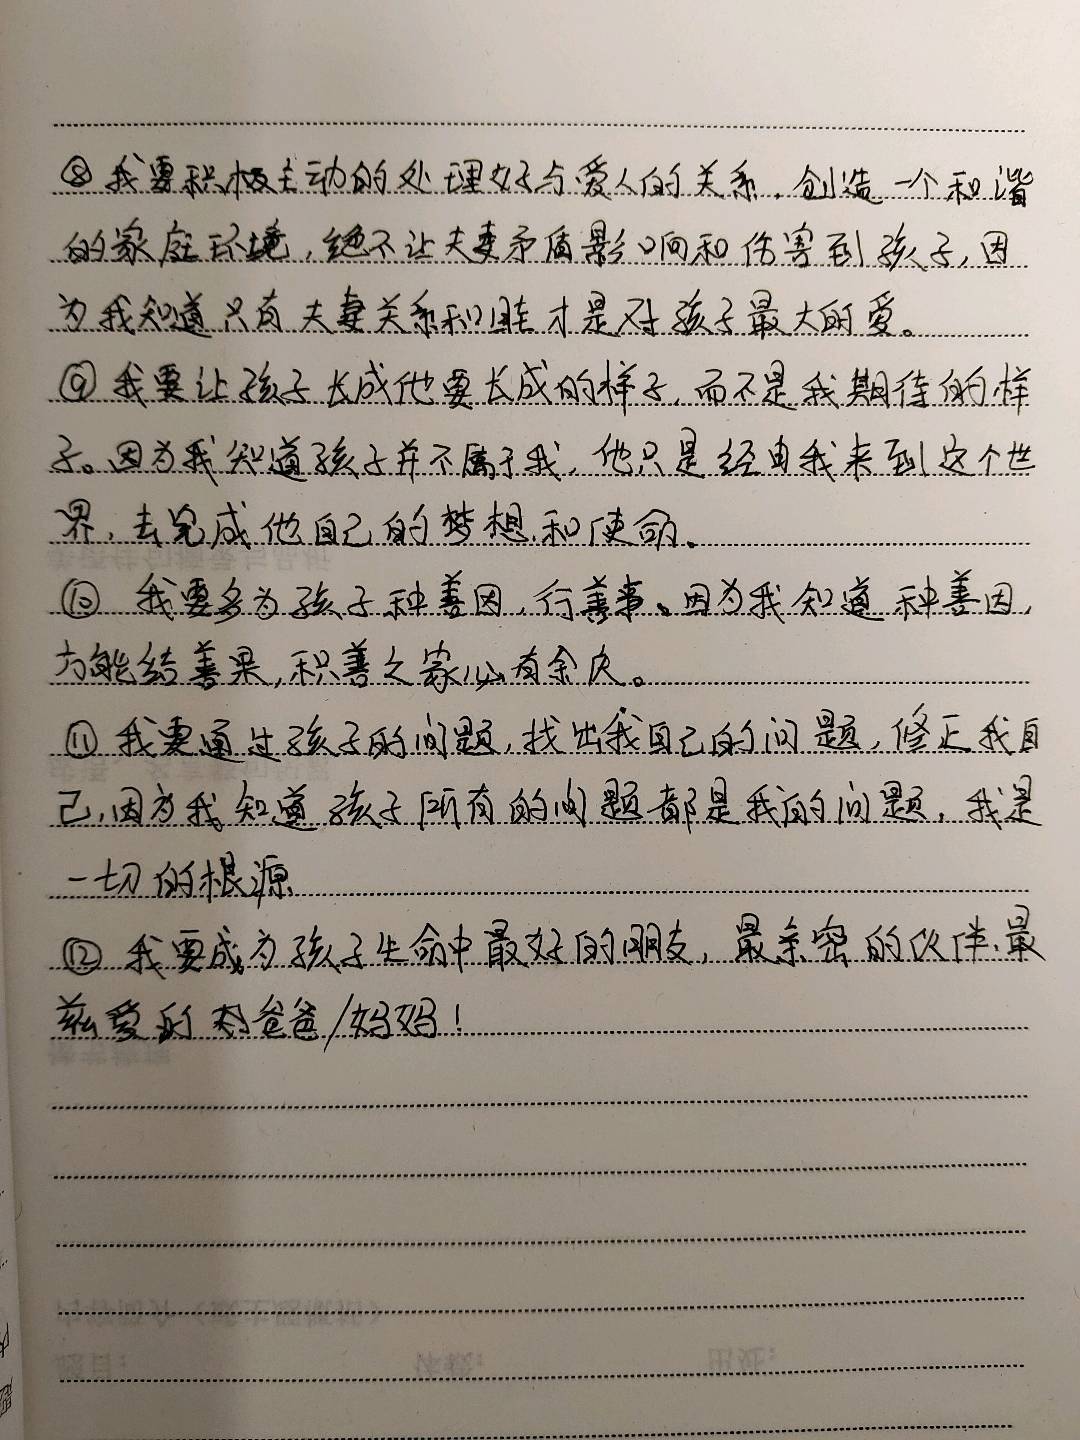 ⑧我要积极主动的处理好与爱人的关系，创造一个和谐
的家庭环境，绝不让夫妻矛盾影响和伤害到孩子，因
为我知道只有夫妻关系和睦才是对孩子最大的爱。
⑨我要让孩子长成他要长成的样子，而不是我期待的样
子。因为我知道孩子并不属于我，他只是经由我来到这个世
界，去完成他自己的梦想和使命。
⑩我要多为孩子种善因，行善事。因为我知道种善因，
方能结善果，积善之家必有余庆。
⑪我要通过孩子的问题，找出我自己的问题，修正我自
己，因为我知道孩子所有的问题都是我的问题，我是
一切的根源
⑫我要成为孩子生命中最好的朋友，最亲密的伙伴、最
慈爱的爸爸/妈妈！